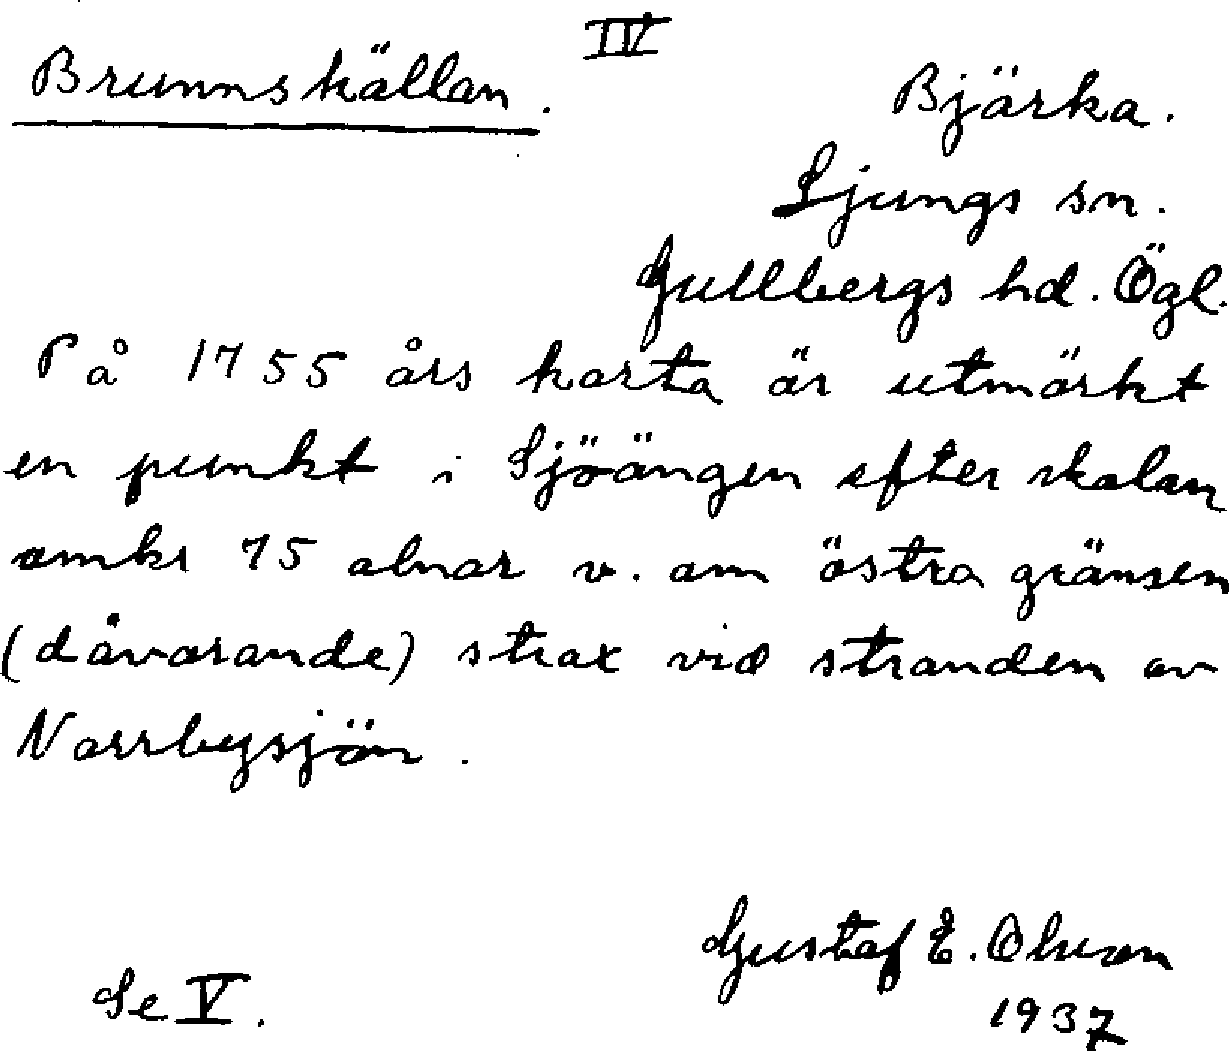 IV
Brunnskällan.
Bjärka.
Ljungs sn.
Gullbergs hd. Ögl.
På 1755 års karta är utmärkt
en punkt i Sjöängen efter skalan
omkr 75 alnar v. om östra gränsen
(dåvarande) strax vid stranden av
Norrbysjön.
Gustaf E. Olsson
Se V.
1937